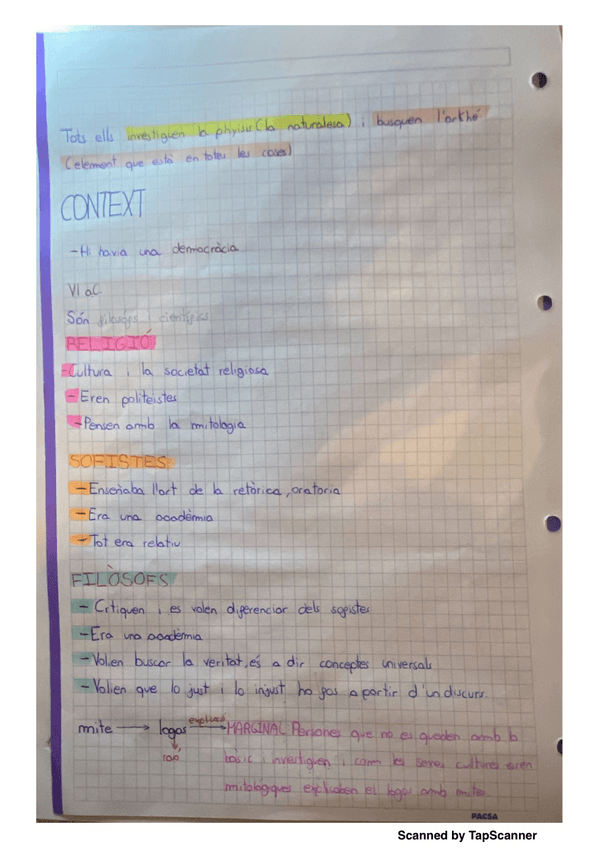 Tots ells investiguen la physis (la naturalesa) i busquen l'arkhé
(element que està en totes les coses)
CONTEXT
-Hi havia una democràcia
VI aC
Són filòsofs i científics
RELIGIÓ
-Cultura i la societat religiosa
-Eren politeistes
-Pensen amb la mitologia
SOFISTES
-Enseñaba l'art de la retòrica, oratoria
-Era una acadèmia
-Tot era relatiu
FILÒSOFS
-Critiquen i es volen diferenciar dels sofistes
-Era una acadèmia
-Volien buscar la veritat, és a dir conceptes universals
-Volien que lo just i lo injust ho fos a partir d'un discurs.
mite → logos → MARGINAL Persones que no es queden amb lo
raó bàsic i investiguen i com les seves cultures eren
mitologiques explicaben el logos amb mites.
PACSA
Scanned by TapScanner